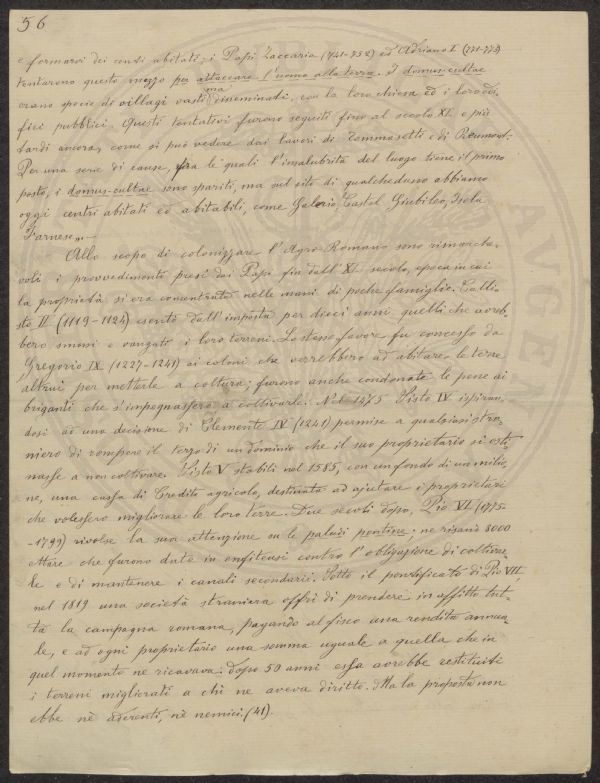 56
e formarvi dei centri abitati; i Papi Zaccaria (741-752) ed Adriano I (771-775)
tentarono questo mezzo per attaccare l'uomo alla terra. I domus-cultae
erano specie di villagi vasti ma disseminati, con la loro chiesa ed i loro edi-
fici pubblici. Questi tentativi furono seguiti fino al secolo XI e più
tardi ancora, come si può vedere dai lavori di Tommasetti e di Reumont.
Per una serie di cause, fra le quali l'insalubrità del luogo tiene il primo
posto, i domus-cultae sono spariti, ma sul sito di qualcheduno abbiamo
oggi centri abitati ed abitabili, come Galeria, Castel Giubileo, Isola
Farnese,..—
Allo scopo di colonizzare l'Agro Romano sono rimarche-
voli i provvedimenti presi dai Papi fin dall'XI secolo, epoca in cui
la proprietà si era concentrata nelle mani di poche famiglie. Calli-
sto II (1119-1124) esentò dall'imposta per dieci anni quelli che avreb-
bero smossi e vangato i loro terreni. Lo stesso favore fu concesso da
Gregorio IX (1227-1241) ai coloni che verrebbero ad abitare le terre
altrui per metterle a colture; furono anche condonate le pene ai
briganti che s'impegnassero a coltivarle. Nel 1475 Sisto IV ispiran-
dosi ad una decisione di Clemente IV (1241) permise a qualsiasi stra-
niero di rompere il terzo di un dominio che il suo proprietario si osti-
nasse a non coltivare. Sisto V stabilì nel 1585, con un fondo di un milio-
ne, una cassa di Credito agricolo, destinata ad ajutare i proprietari
che volessero migliorare le loro terre. Due secoli dopo, Pio VI (1775-
-1799) rivolse la sua attenzione su le paludi pontine; ne risanò 8000
ettare che furono date in enfiteusi contro l'obligazione di coltivar-
le e di mantenere i canali secondarii. Sotto il pontificato di Pio VII,
nel 1819 una società straniera offrì di prendere in affitto tut-
ta la campagna romana, pagando al fisco una rendita annua-
le, e ad ogni proprietario una somma uguale a quella che in
quel momento ne ricavava. Dopo 50 anni essa avrebbe restituiti
i terreni migliorati a chi ne aveva diritto. Ma la proposta non
ebbe nè aderenti, nè nemici. (41).